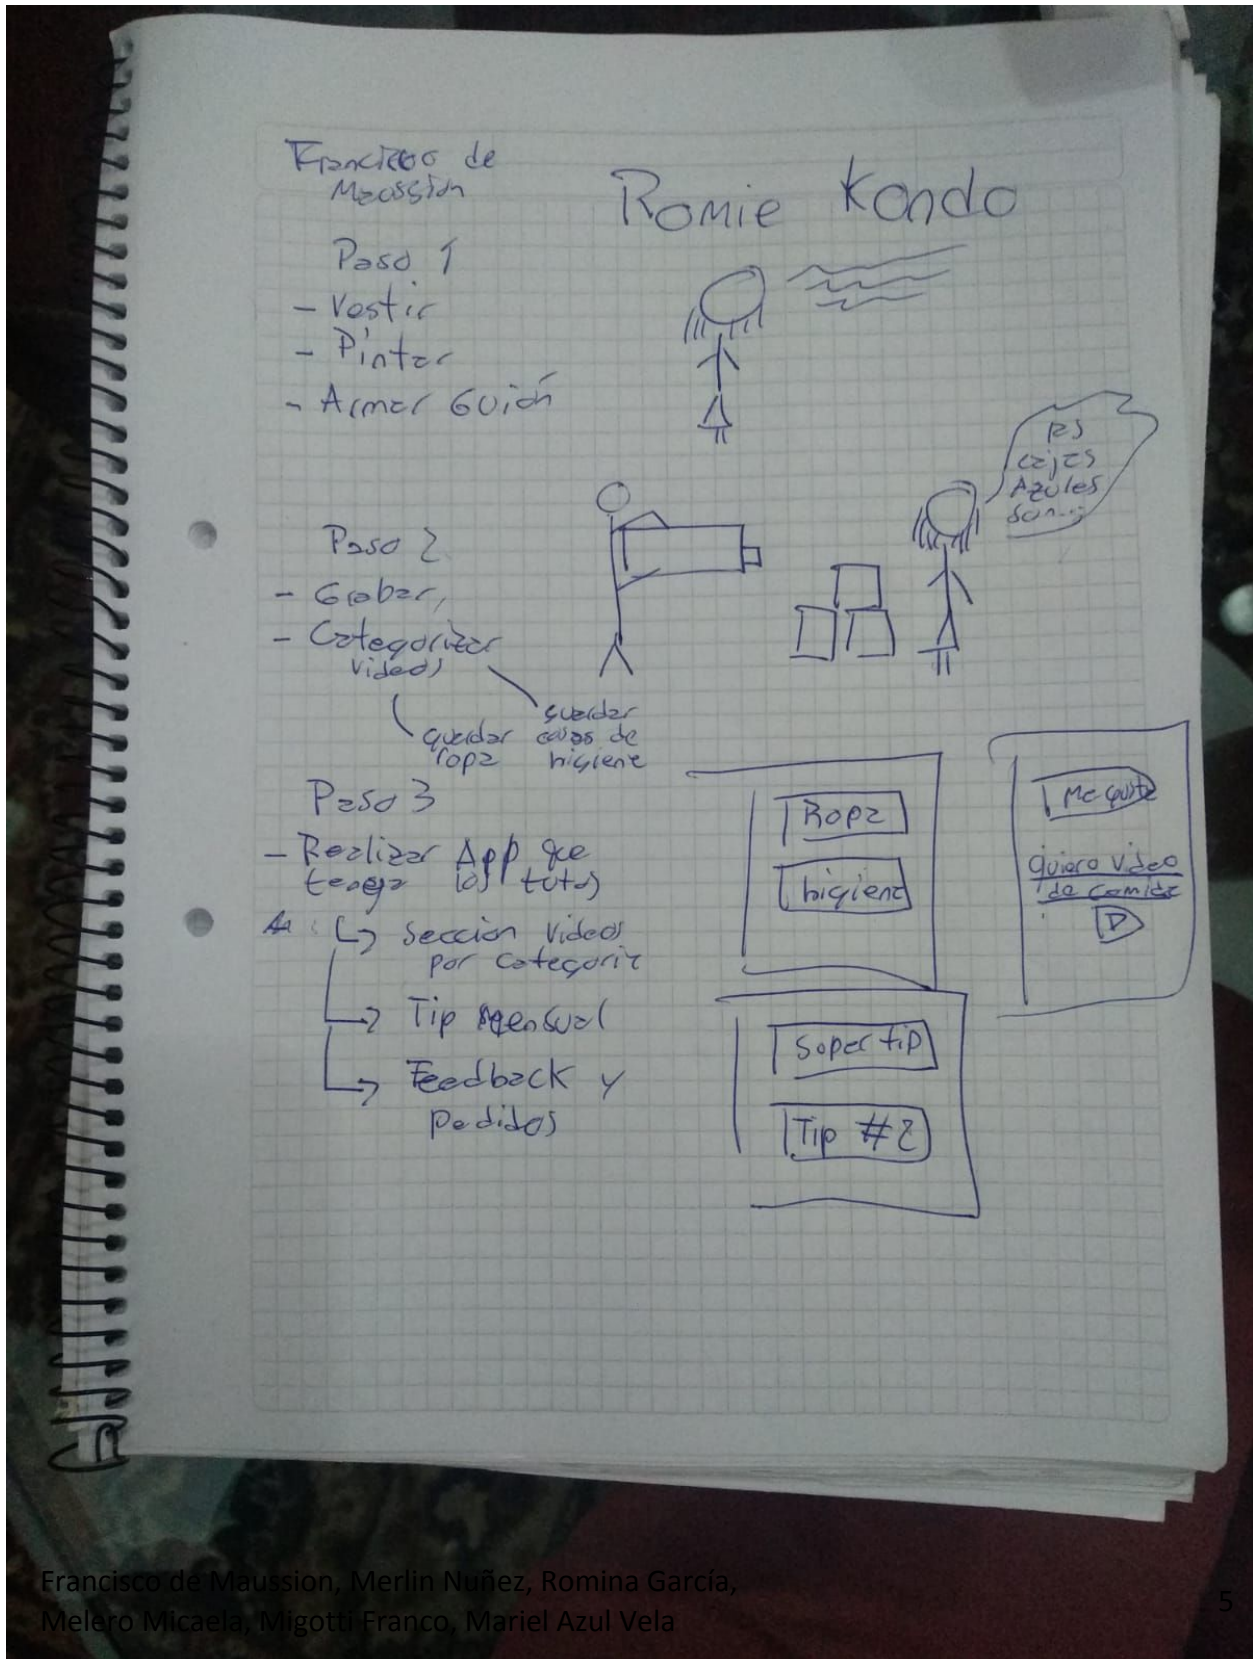 Francisco de
Maussion
Romie Kondo
Paso 1
- Vestir
- Pintar
- Armar Guión
Paso 2
- Grabar,
- Categorizar
videos
guardar
ropa
guardar
cosas de
higiene
cajas
Azules
son...
Paso 3
- Realizar App que
tenga los tutos
Sección videos
por categoria
Tip Mensual
Feedback y
pedidos
Ropa
higiene
Me gusta
quiero video
de comida
Super tip
Tip #2
Francisco de Maussion, Merlin Nuñez, Romina García,
Melero Micaela, Migotti Franco, Mariel Azul Vela
5